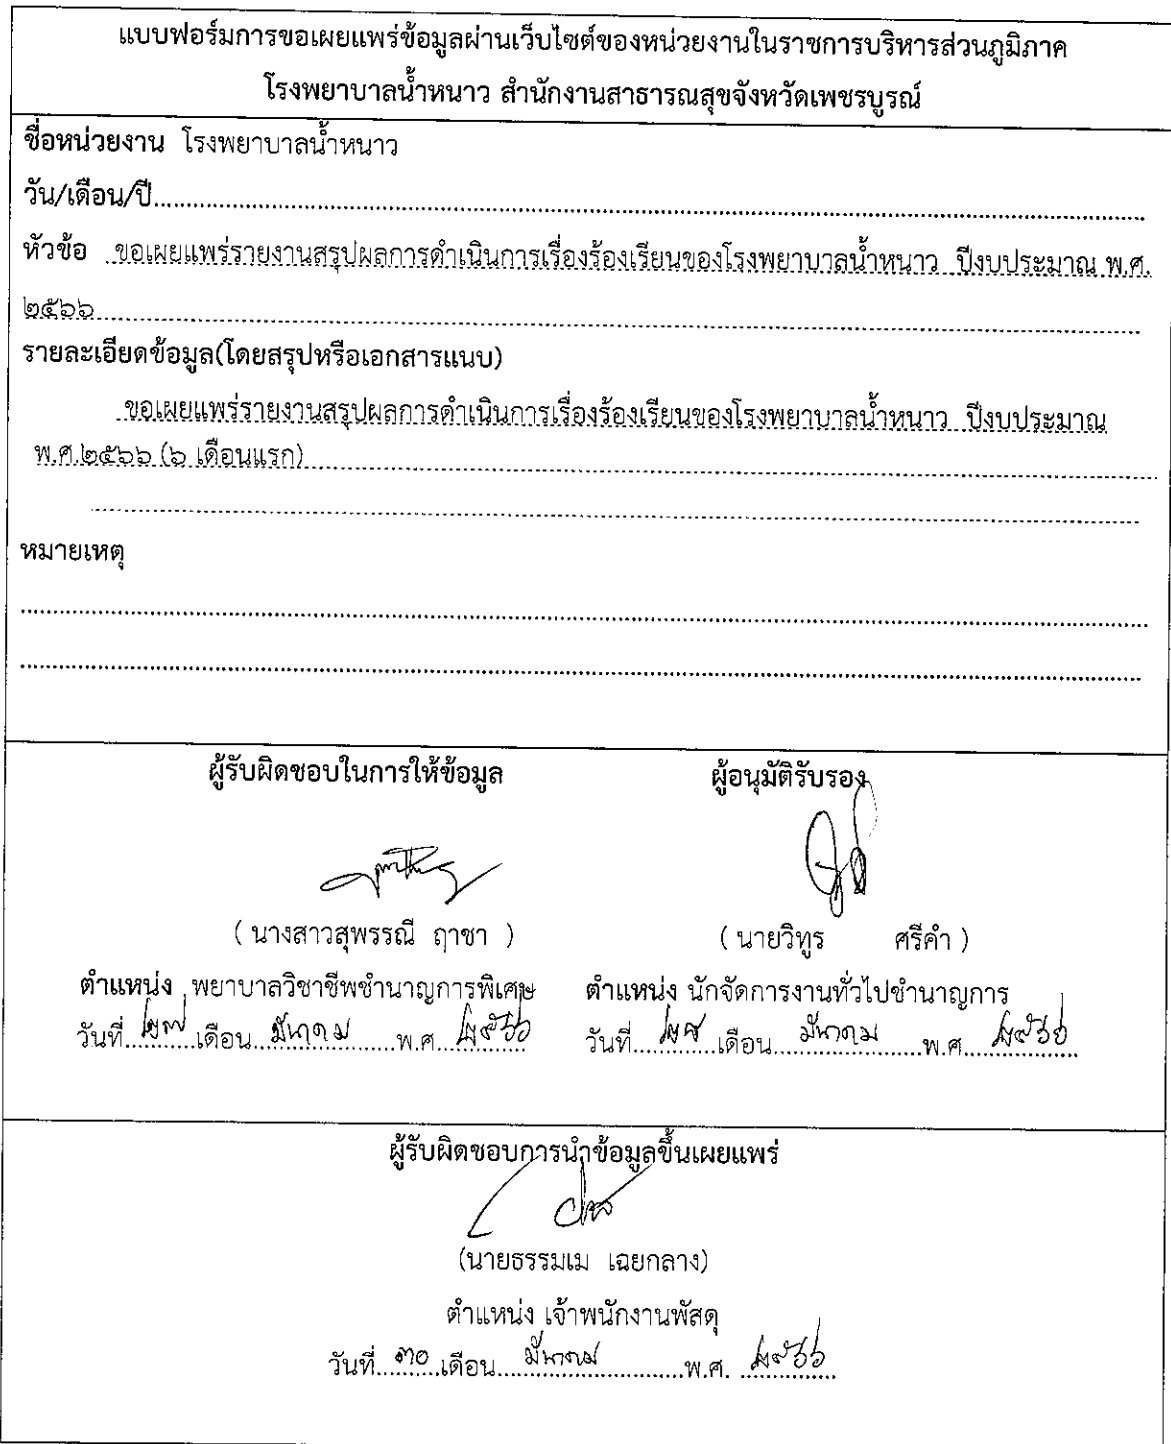 แบบฟอร์มการขอเผยแพร่ข้อมูลผ่านเว็บไซต์ของหน่วยงานในราชการบริหารส่วนภูมิภาค
โรงพยาบาลน้ำหนาว สำนักงานสาธารณสุขจังหวัดเพชรบูรณ์
ชื่อหน่วยงาน โรงพยาบาลน้ำหนาว
วัน/เดือน/ปี
หัวข้อ ขอเผยแพร่รายงานสรุปผลการดำเนินการเรื่องร้องเรียนของโรงพยาบาลน้ำหนาว ปีงบประมาณ พ.ศ.
๒๕๖๖
รายละเอียดข้อมูล(โดยสรุปหรือเอกสารแนบ)
ขอเผยแพร่รายงานสรุปผลการดำเนินการเรื่องร้องเรียนของโรงพยาบาลน้ำหนาว ปีงบประมาณ
พ.ศ.๒๕๖๖ (๖ เดือนแรก)
หมายเหตุ
ผู้รับผิดชอบในการให้ข้อมูล ผู้อนุมัติรับรอง
( นางสาวสุพรรณี ฤาชา ) ( นายวิทูร ศรีคำ )
ตำแหน่ง พยาบาลวิชาชีพชำนาญการพิเศษ ตำแหน่ง นักจัดการงานทั่วไปชำนาญการ
วันที่ ๒๗ เดือน มีนาคม พ.ศ. ๒๕๖๖ วันที่ เดือน มีนาคม พ.ศ. ๒๕๖๖
ผู้รับผิดชอบการนำข้อมูลขึ้นเผยแพร่
(นายธรรมเม เฉยกลาง)
ตำแหน่ง เจ้าพนักงานพัสดุ
วันที่ ๓๐ เดือน มีนาคม พ.ศ. ๒๕๖๖